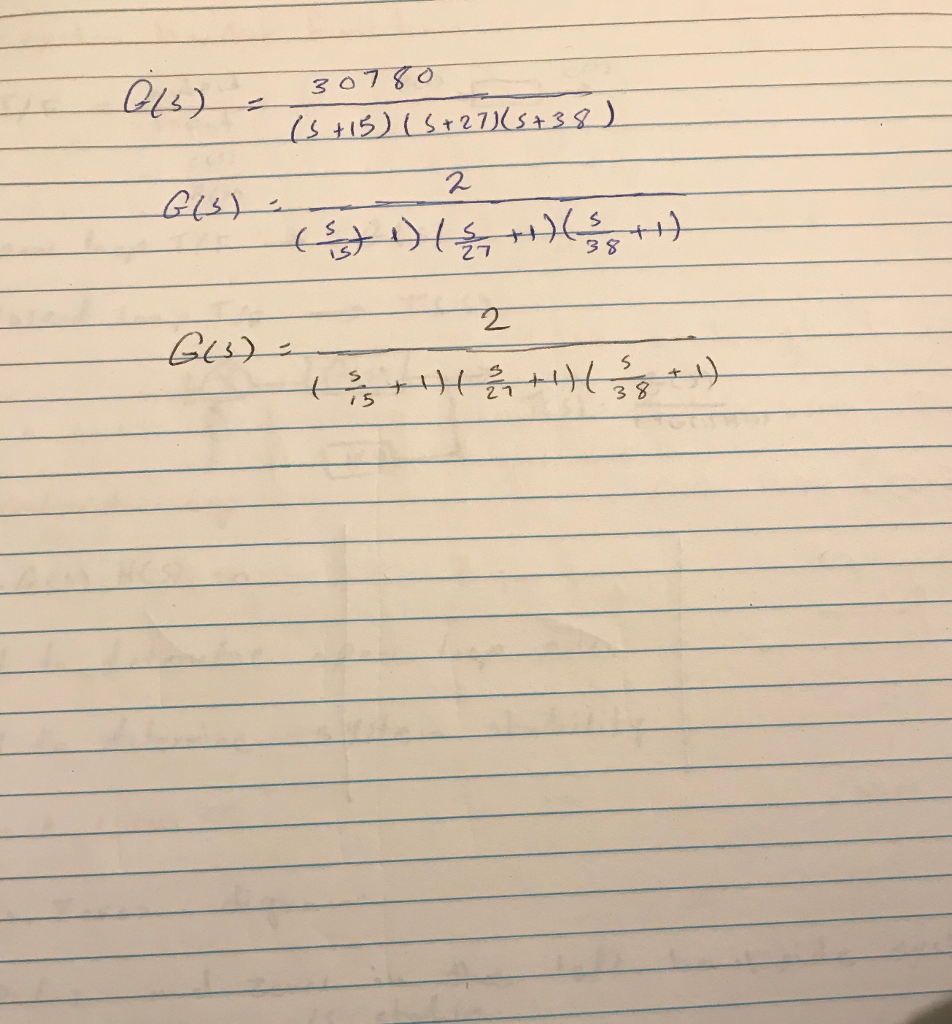 G(s) = 30780 / (s+15)(s+27)(s+38)
G(s) = 2 / (s/15 + 1)(s/27 + 1)(s/38 + 1)
G(s) = 2 / (s/15 + 1)(s/27 + 1)(s/38 + 1)